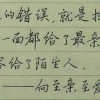 的错误,就是把
一面都给了最亲
给了陌生人
——向至亲至爱